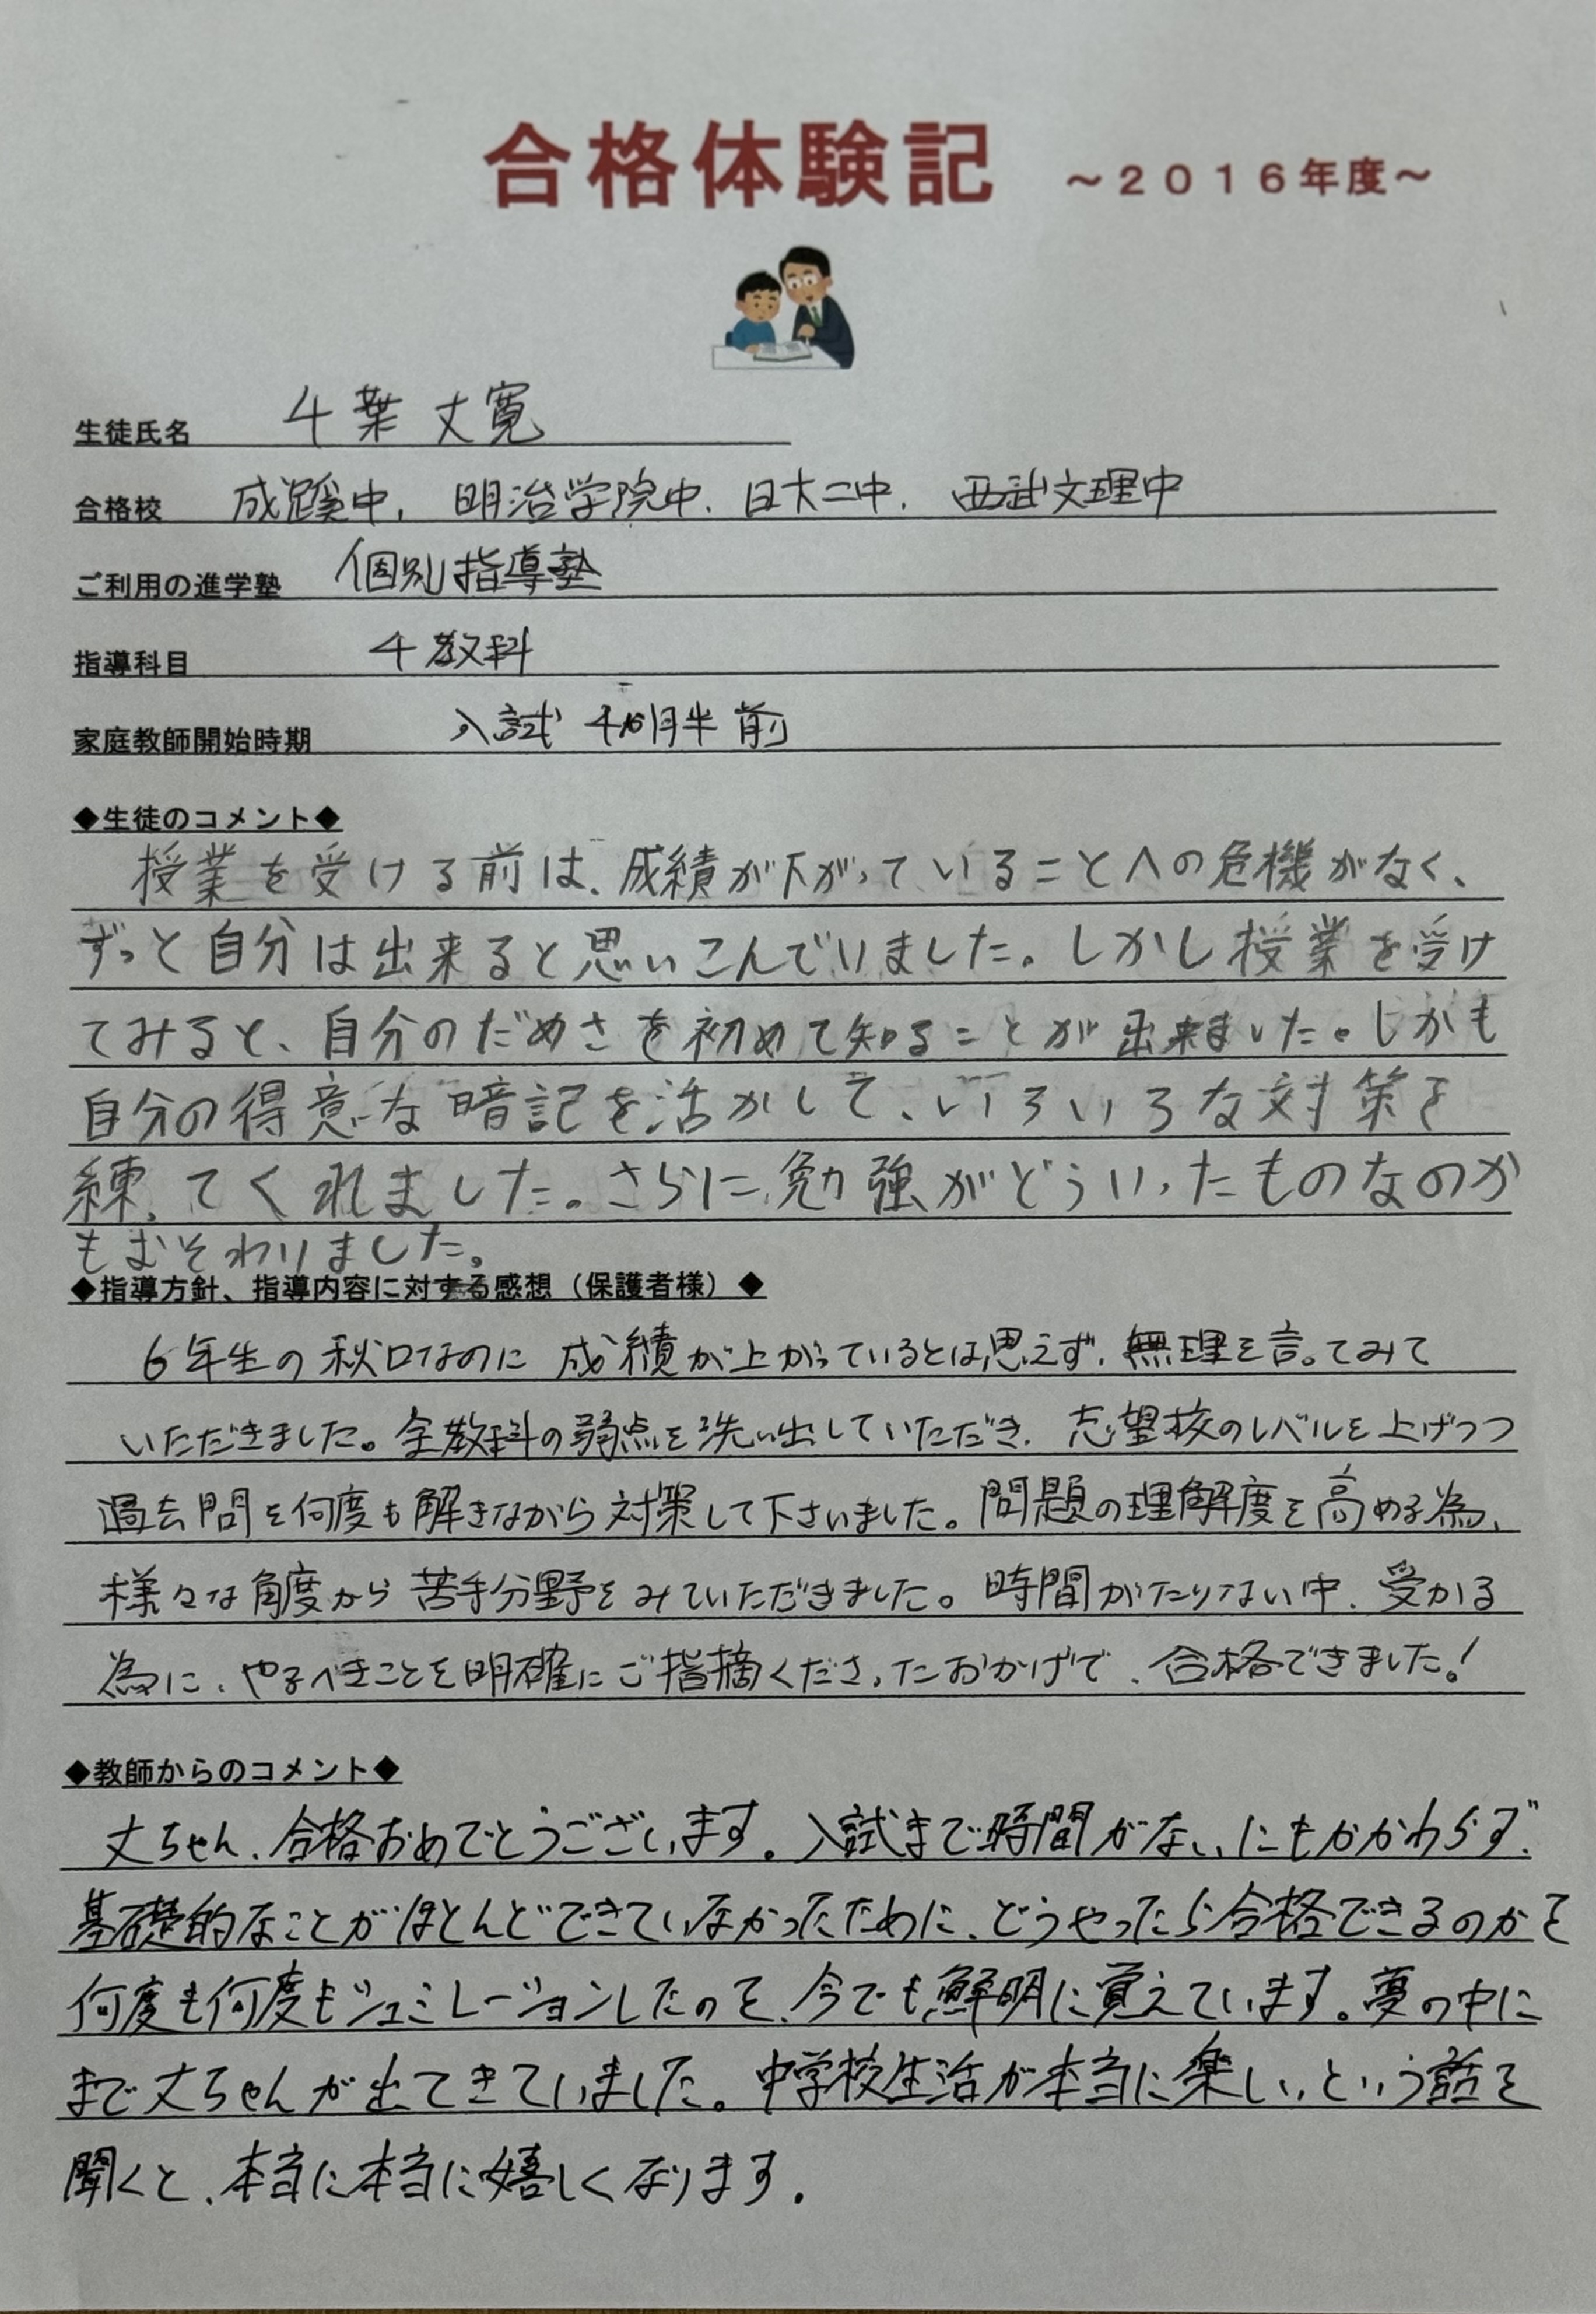 合格体験記 ～２０１６年度～
生徒氏名 千葉 丈寛
合格校 成蹊中, 明治学院中. 日大二中. 西武文理中
ご利用の進学塾 個別指導塾
指導科目 4教科
家庭教師開始時期 入試 4ヶ月半前
◆生徒のコメント◆
授業を受ける前は、成績が下がっていることへの危機がなく、
ずっと自分は出来ると思いこんでいました。しかし授業を受け
てみると、自分のだめさを初めて知ることが出来ました。しかも
自分の得意な暗記を活かして、いろいろな対策を
練ってくれました。さらに、勉強がどういったものなのか
もおそわりました。
◆指導方針、指導内容に対する感想（保護者様）◆
6年生の秋口なのに 成績が上がっているとは思えず、無理を言ってみて
いただきました。全教科の弱点を洗い出していただき、志望校のレベルを上げつつ
過去問を何度も解きながら対策して下さいました。問題の理解度を高める為、
様々な角度から苦手分野をみていただきました。時間がたりない中、受かる
為に、やるべきことを明確にご指摘くださったおかげで、合格できました！
◆教師からのコメント◆
丈ちゃん、合格おめでとうございます。入試まで時間がないにもかかわらず、
基礎的なことがほとんどできていなかったために、どうやったら合格できるのかを
何度も何度もシュミレーションしたのを、今でも鮮明に覚えています。夢の中に
まで丈ちゃんが出てきていました。中学校生活が本当に楽しいという話を
聞くと、本当に本当に嬉しくなります。